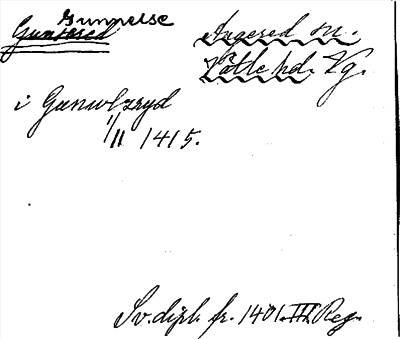 Gunnelse
Gunnered Angered sn.
Vätle hd. Vg.
i Gunulzryd
1/11 1415.
Sv. dipl. fr. 1401. III Reg.